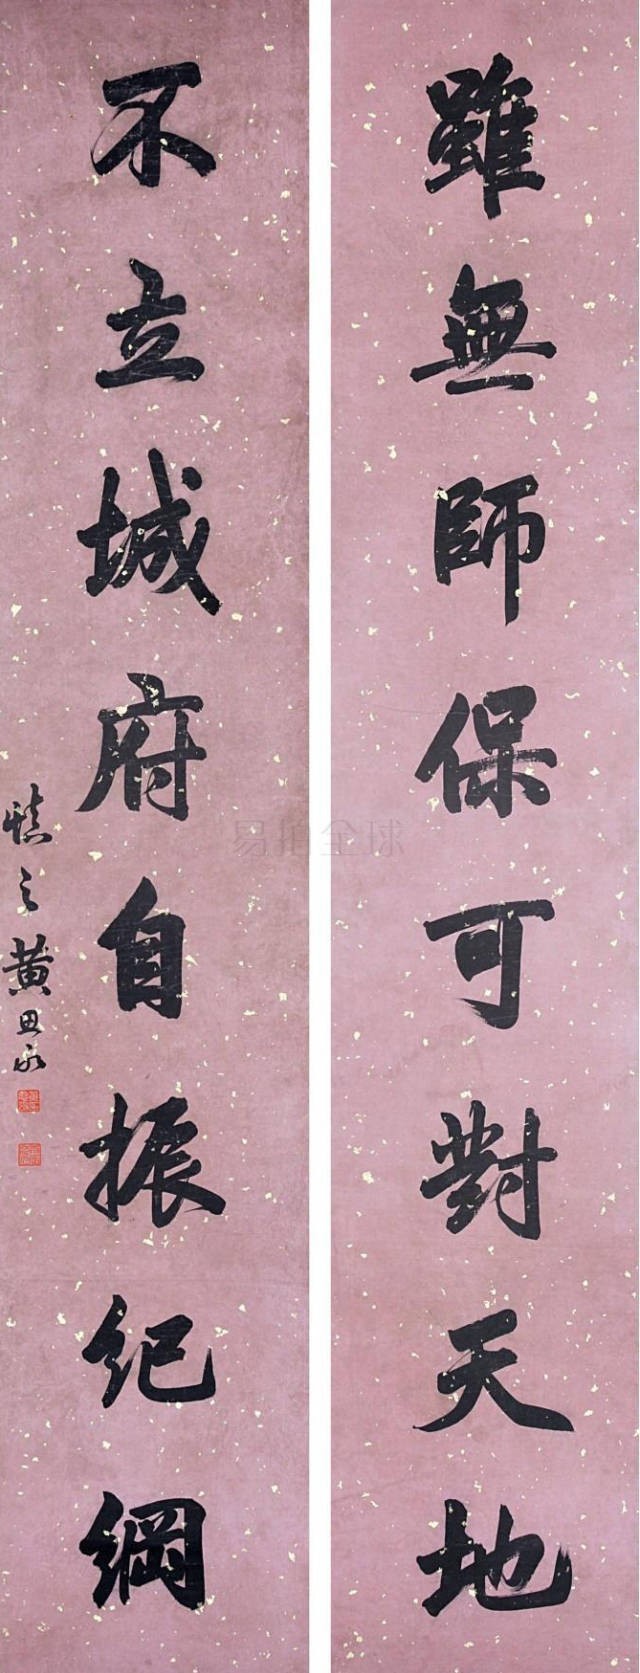 雖無師保可對天地
不立城府自振紀綱
慎之黃思永
易拍全球